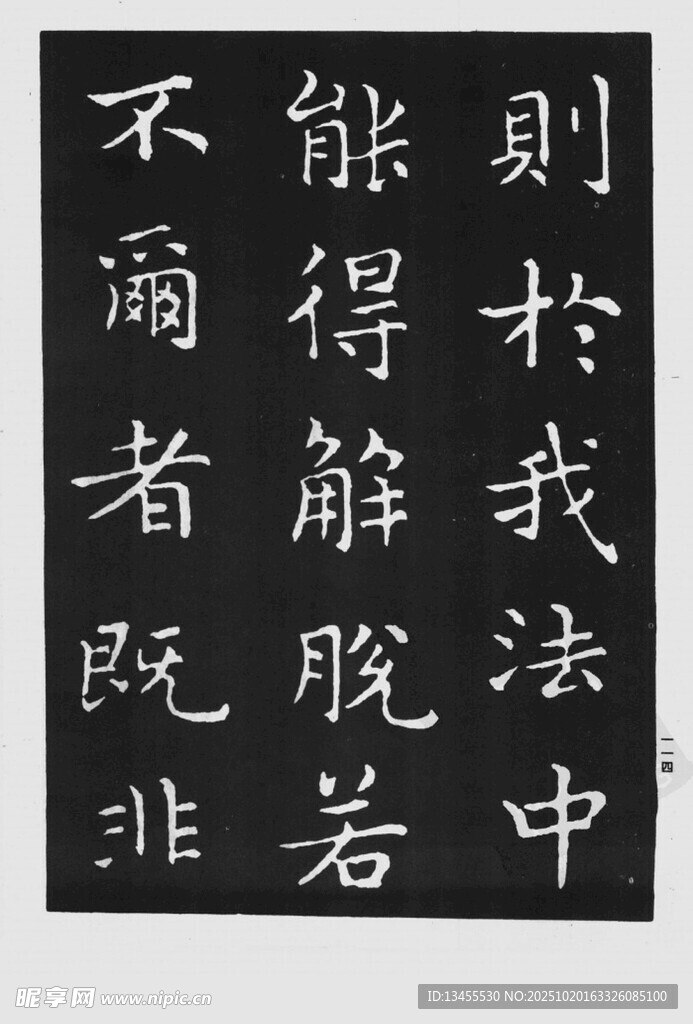 則於我法中
能得解脱若
不爾者既非
一一四
昵享网 www.nipic.cn
ID:13455530 NO:20251020163326085100